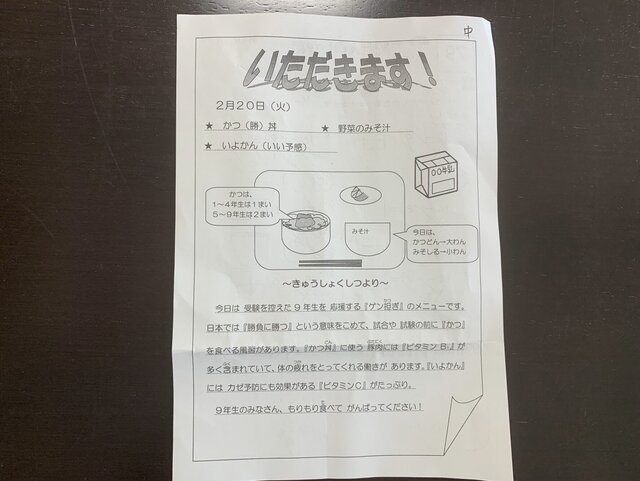 中
いただきます！
２月２０日（火）
★ かつ（勝）丼 ★ 野菜のみそ汁
★ いよかん（いい予感）
〇〇牛乳
かつは、
１～４年生は１まい
５～９年生は２まい
みそ汁
今日は、
かつどん→大わん
みそしる→小わん
～きゅうしょくしつより～
今日は 受験を控えた ９年生を 応援する『ゲン担ぎ』のメニューです。
日本では『勝負に勝つ』という意味をこめて、試合や 試験の前に『かつ』
を食べる風習があります。『かつ丼』に使う 豚肉には『ビタミンＢ₁』が
多く含まれていて、体の疲れをとってくれる働きが あります。『いよかん』
には カゼ予防にも効果がある『ビタミンＣ』がたっぷり。
９年生のみなさん、もりもり食べて がんばってください！